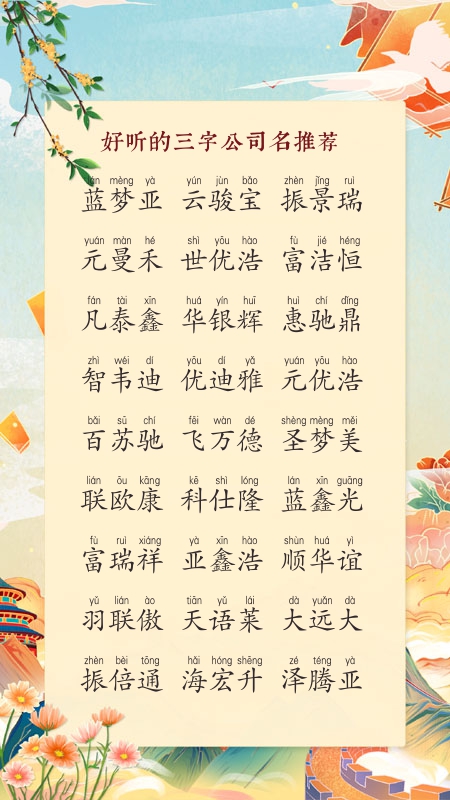 好听的三字公司名推荐
lán mèng yà yún jùn bǎo zhèn jǐng ruì
蓝梦亚 云骏宝 振景瑞
yuán màn hé shì yōu hào fù jié héng
元曼禾 世优浩 富洁恒
fán tài xīn huá yín huī huì chí dǐng
凡泰鑫 华银辉 惠驰鼎
zhì wéi dí yōu dí yǎ yuán yōu hào
智韦迪 优迪雅 元优浩
bǎi sū chí fēi wàn dé shèng mèng měi
百苏驰 飞万德 圣梦美
lián ōu kāng kē shì lóng lán xīn guāng
联欧康 科仕隆 蓝鑫光
fù ruì xiáng yà xīn hào shùn huá yì
富瑞祥 亚鑫浩 顺华谊
yǔ lián ào tiān yǔ lái dà yuǎn dà
羽联傲 天语莱 大远大
zhèn bèi tōng hǎi hóng shēng zé téng yà
振倍通 海宏升 泽腾亚